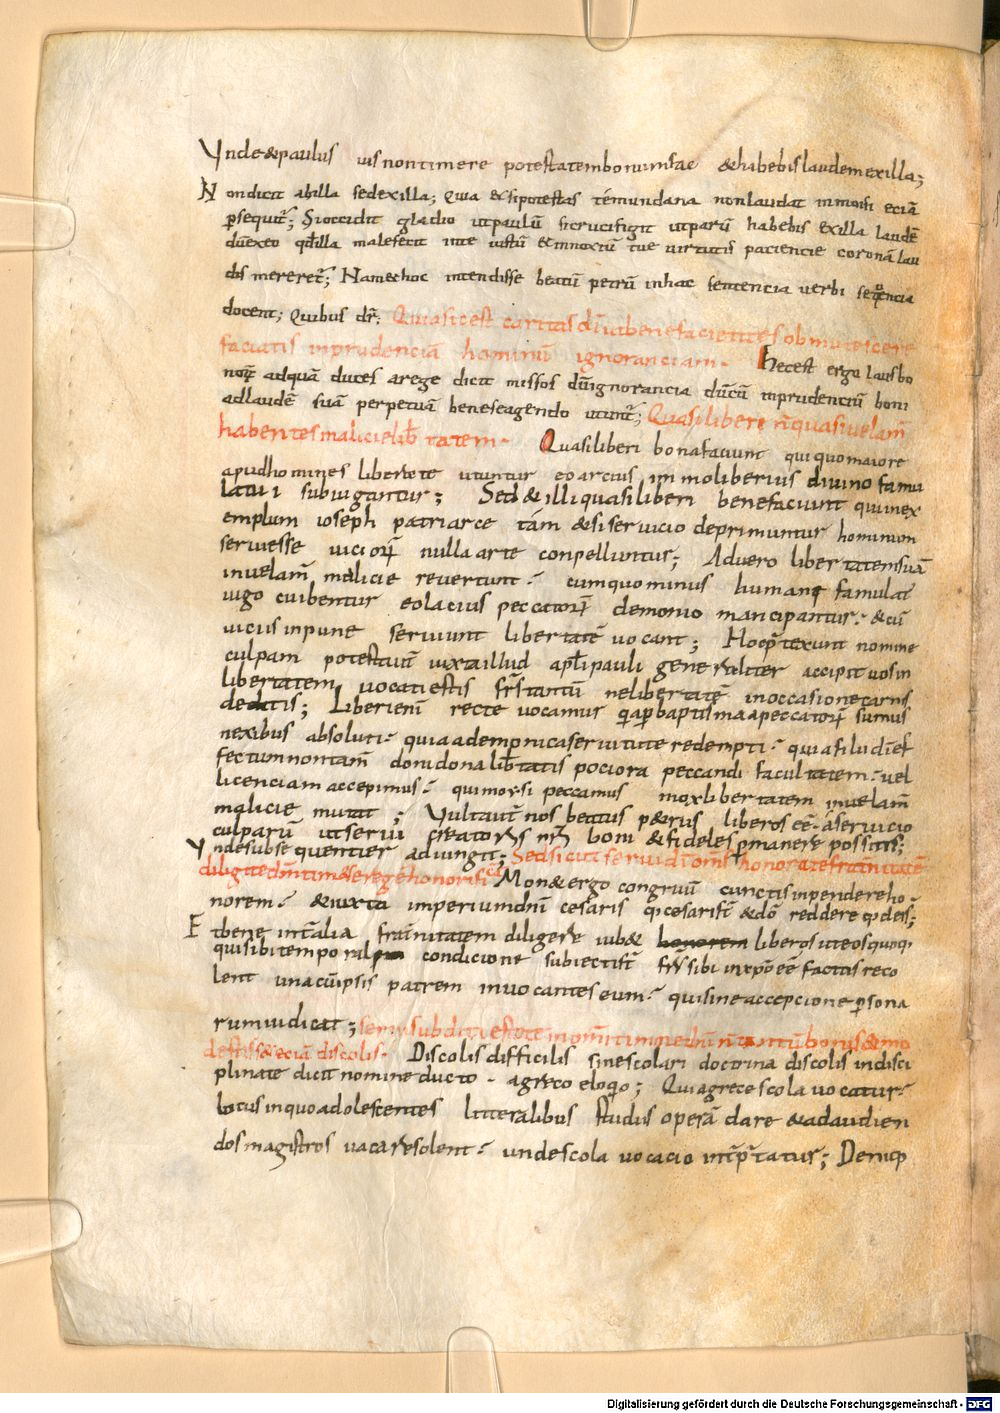 Vnde & paulus uis non timere potestatem bonum fac & habebis laudem ex illa;
Non dicit ab illa sed ex illa; Quia etsi potestas tẽ mundana non laudat immo si eciã
ꝑsequit̃; Si occidit gladio ut paulũ si crucifigit ut parũ habebis ex illa laudẽ
dũ ex eo qđ illa malefecit inte iustũ & innoxiũ tue uirtutis paciencie coronã lau
dis mereret̃; Nam & hoc intendisse beatũ petrũ in hac sentencia uerbi sequencia
docent; Quibus dr̃; Quia sic est caritas dĩ ut benefacientes obmutescere
faciatis inprudenciã hominũ ignoranciam. Hec est ergo laus bo
norũ ad quã duces a rege dicit missos dũ ignorancia
ad laudẽ suã perpetuã bene se agendo utunt̃; Quasi liberi ñ quasi uelam̃
habentes malicie lib̃tatem. Quasi liberi bona faciunt qui quo maiore
apud homines libertate utuntur eo arcius immo liberius diuino famu
latui subiugantur; Sed & illi quasi liberi bene faciunt qui in ex
emplum ioseph patriarce tam & si seruicio deprimuntur hominum
seruisse uiciorũ nulla arte conpelluntur; At uero libertatem suã
in uelam̃ malicie reuertunt. cum quo minus humanę famulat
iugo cuibentur eo lacius peccatorũ demonio mancipantur. & cũ
uiciis inpune seruiunt libertatẽ uocant; Hoc p̃texunt nomine
culpam potestatiuũ iuxta illud apłi pauli generaliter accipit uos in
libertatem uocati estis fr̃s tantũ ne libertatẽ in occasione carnis
dedetis; Liberi enĩ recte uocamur quia ꝑ baptisma a peccatorũ sumus
nexibus absoluti. quia a demonica seruitute redempti. quia filii dĩ ef
fecti um non tam̃ doni dona lib̃tatis pociora peccandi facultatem. uel
licenciam accepimus. qui mox si peccamus mox libertatem in uelam̃
malicie mutat; Vult aut̃ nos beatus p&rus liberos eẽ. a seruicio
culparũ ut serui creatoris nr̃i boni & fideles pmanere possitis;
Vnde subsequenter adiungit; Sed sicut serui dĩ om̃s honorate frat̃nitatẽ
diligite dm̃ tim&e regẽ honorificate Mon& ergo congruũ cunctis inpendere ho
norem. & iuxta imperium dñi cesaris que cesaris st̃ & dõ reddere que dei st̃;
Et bene int̃ alia frat̃nitatem diligere iub& liberos ut eos quoq;
qui sibi temporal condicione subiecti st̃ fr̃s sibi in xp̃o eẽ factus reco
lent una cũ ipsis patrem inuocantes eum. qui sine accepcione ꝑsona
rum iudicat; serui subditi estote in om̃i timore dñis ñ tantũ bonis & mo
destis s& eciã discolis. Discolis difficilis sine scolari doctrina discolis indisci
plinate dicit nomine ducto. a greco eloquio; Qui a grece scola uocatur.
locus in quo adolescentes litteralibus studiis operã dare & ad audien
dos magistros uacare solent. unde scola uocacio int̃p̃tatur; Deniq;